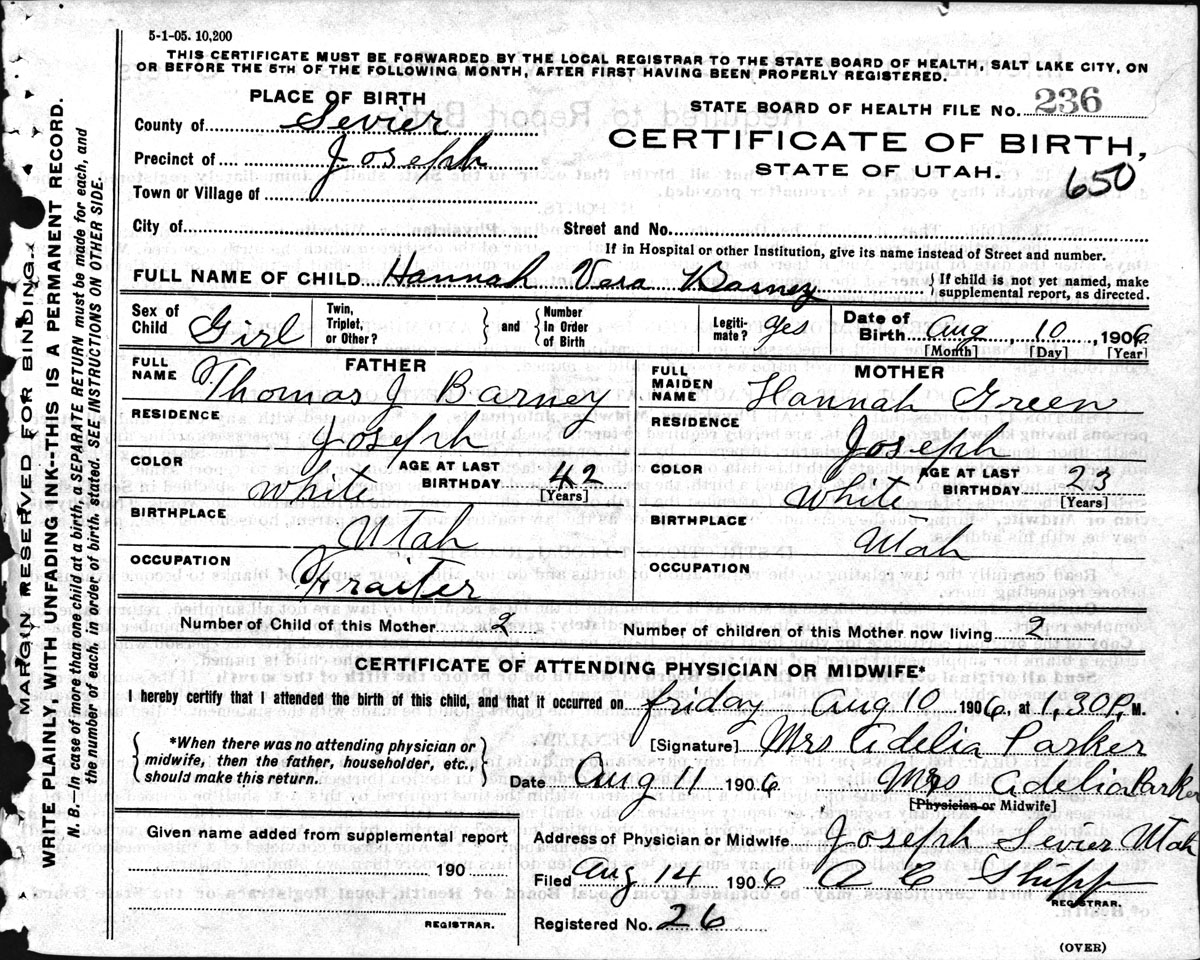 5-1-05. 10,200
THIS CERTIFICATE MUST BE FORWARDED BY THE LOCAL REGISTRAR TO THE STATE BOARD OF HEALTH, SALT LAKE CITY, ON
OR BEFORE THE 5TH OF THE FOLLOWING MONTH, AFTER FIRST HAVING BEEN PROPERLY REGISTERED.
PLACE OF BIRTH
STATE BOARD OF HEALTH FILE No. 236
County of Sevier
CERTIFICATE OF BIRTH,
Precinct of Joseph
STATE OF UTAH.
650
Town or Village of
City of
Street and No.
If in Hospital or other Institution, give its name instead of Street and number.
FULL NAME OF CHILD Hannah Vera Barney
{ If child is not yet named, make
supplemental report, as directed.
Sex of Child Girl
Twin, Triplet, or Other? } and { Number in Order of Birth
Legiti-mate? yes
Date of Birth Aug 10, 1906
[Month] [Day] [Year]
FATHER
FULL NAME Thomas J Barney
RESIDENCE Joseph
COLOR White
AGE AT LAST BIRTHDAY 42
[Years]
BIRTHPLACE Utah
OCCUPATION Fraiter
MOTHER
FULL MAIDEN NAME Hannah Green
RESIDENCE Joseph
COLOR White
AGE AT LAST BIRTHDAY 23
[Years]
BIRTHPLACE Utah
OCCUPATION
Number of Child of this Mother 2
Number of children of this Mother now living 2
CERTIFICATE OF ATTENDING PHYSICIAN OR MIDWIFE*
I hereby certify that I attended the birth of this child, and that it occurred on friday Aug 10 1906, at 1,30 P, M.
{ *When there was no attending physician or
midwife, then the father, householder, etc.,
should make this return. }
[Signature] Mrs Adelia Parker
Date Aug 11 1906
Mrs Adelia Parker
[Physician or Midwife]
Given name added from supplemental report
190
REGISTRAR.
Address of Physician or Midwife Joseph Sevier Utah
Filed Aug 14 1906 A C Shipp
REGISTRAR.
Registered No. 26
(OVER)
MARGIN RESERVED FOR BINDING.
WRITE PLAINLY, WITH UNFADING INK--THIS IS A PERMANENT RECORD.
N. B.—In case of more than one child at a birth, a SEPARATE RETURN must be made for each, and
the number of each, in order of birth, stated. SEE INSTRUCTIONS ON OTHER SIDE.